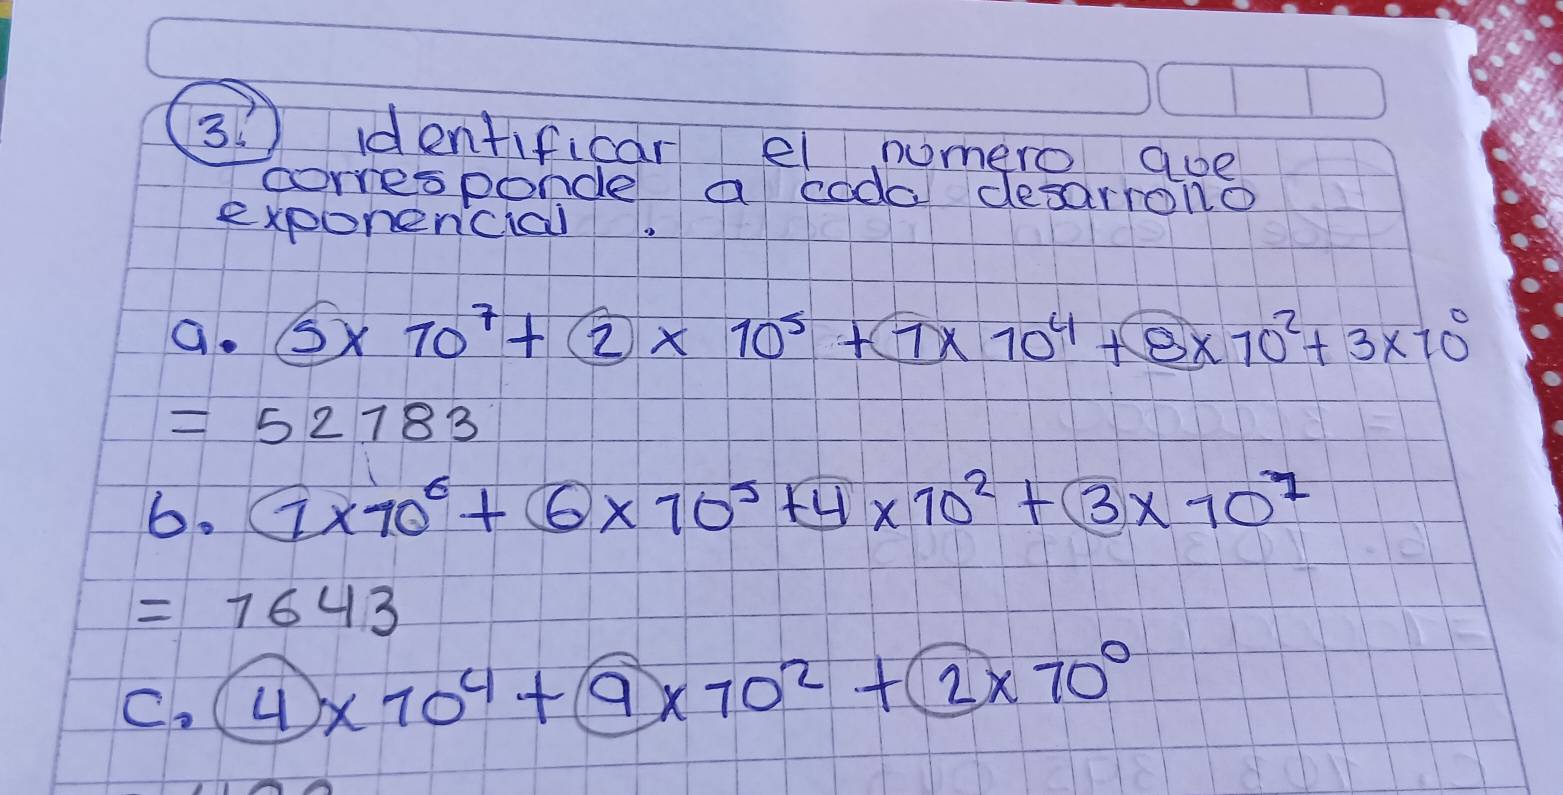 3. identificar el número que
corresponde a cada desarrollo
exponencial.
a. 5x 10⁷ + 2 x 10⁵ + 1x 10⁴ + 8x 10² + 3x10⁰
= 52183
b. 1x10⁶ + 6x 10⁵ + 4 x 10² + 3x 10¹
= 1643
c. 4x 10⁴ + 9x 10² + 2x 10⁰